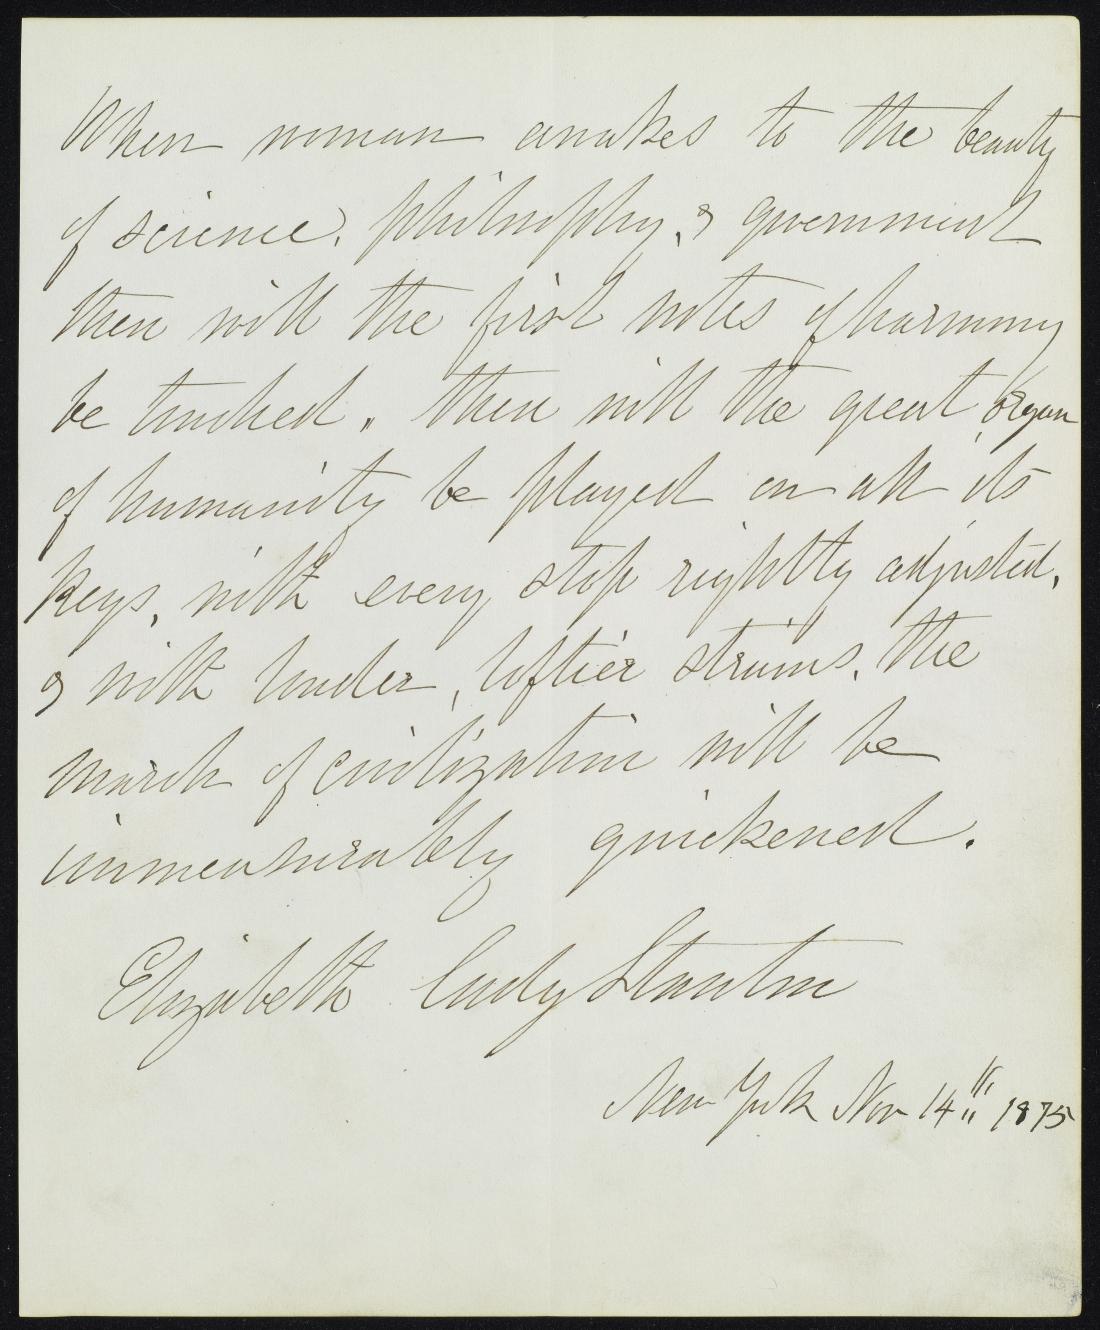 When woman awakes to the beauty
of science, philosophy, & government
then will the first notes of harmony
be touched, then will the great organ
of humanity be played on all its
keys, with every stop rightly adjusted,
& with louder, loftier strains, the
march of civilization will be
immeasurably quickened.
Elizabeth Cady Stanton
New York Nov 14th 1875